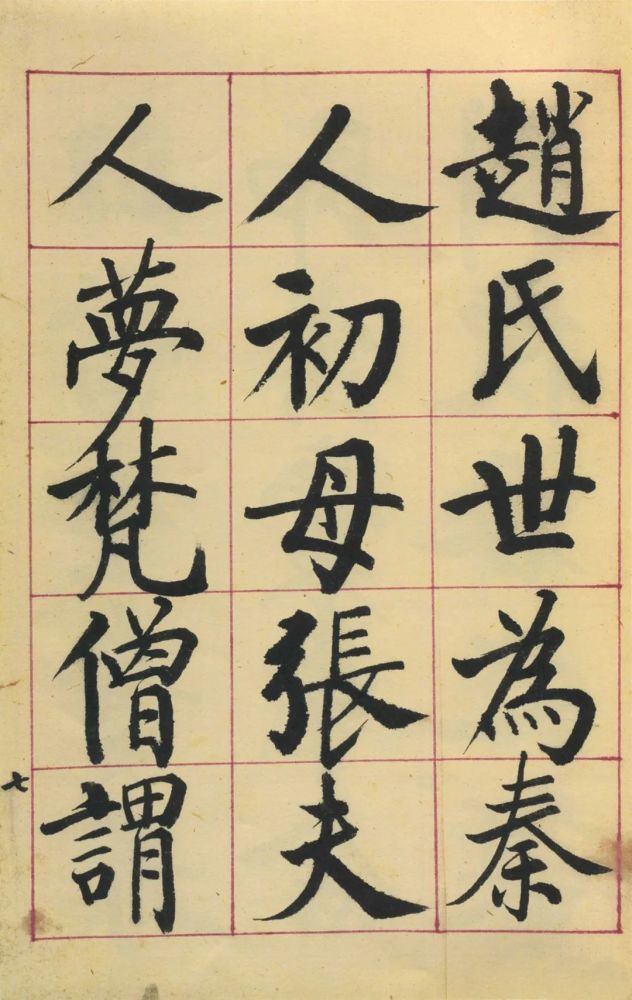 趙氏世為秦
人初母張夫
人夢梵僧謂
七